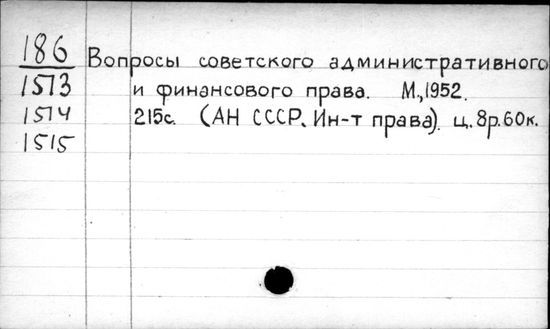 186 Вопросы советского административного
1513 и финансового права. М.,1952.
1514 215с. (АН СССР. Ин-т права). ц. 8р.60к.
1515